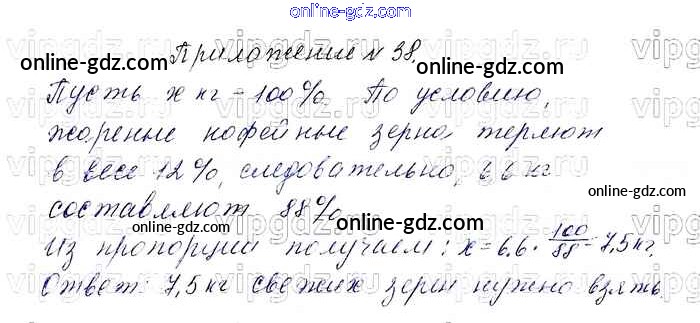 online-gdz.com
Приложение № 38.
online-gdz.com
online-gdz.com
Пусть x кг – 100%. По условию,
жареные кофейные зерна теряют
в весе 12%, следовательно, 6,6 кг
online-gdz.com
составляют 88%.
online-gdz.com
Из пропорции получаем: x = 6,6 · 100/88 = 7,5 кг.
Ответ: 7,5 кг свежих зерен нужно взять.